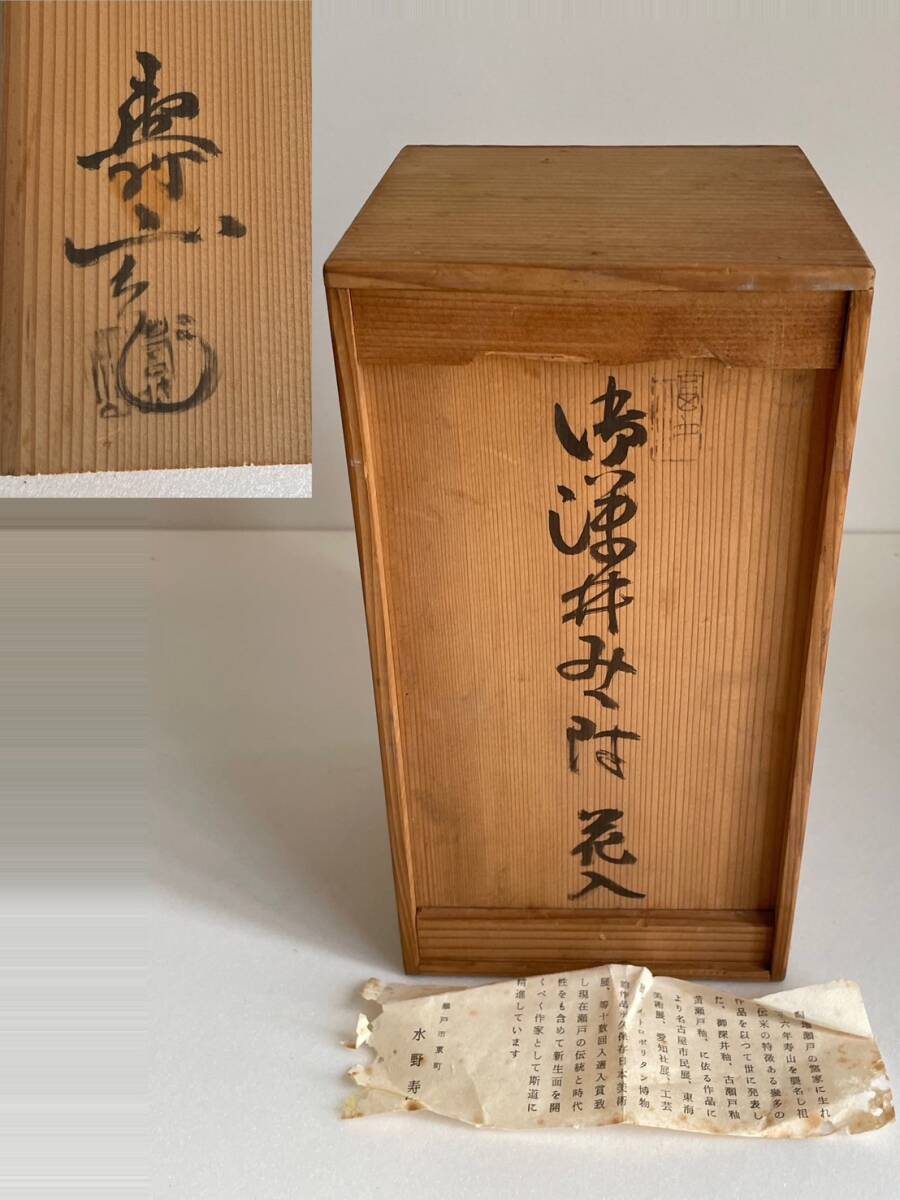 寿山
御深井みゝ附 花入
瀬戸の窯家に生れ
六年寿山を襲名し祖
伝来の特徴ある幾多の
作品を以つて世に発表し
た。御深井釉、古瀬戸釉
黄瀬戸釉、に依る作品に
より名古屋市民展、東海
美術展、愛知社展、工芸
トロポリタン博物
館作品永久保存日本美術
展、等十数回入選入賞致
し現在瀬戸の伝統と時代
性をも含めて新生面を開
くべく作家として斯道に
精進しています
瀬戸市東町
水野寿